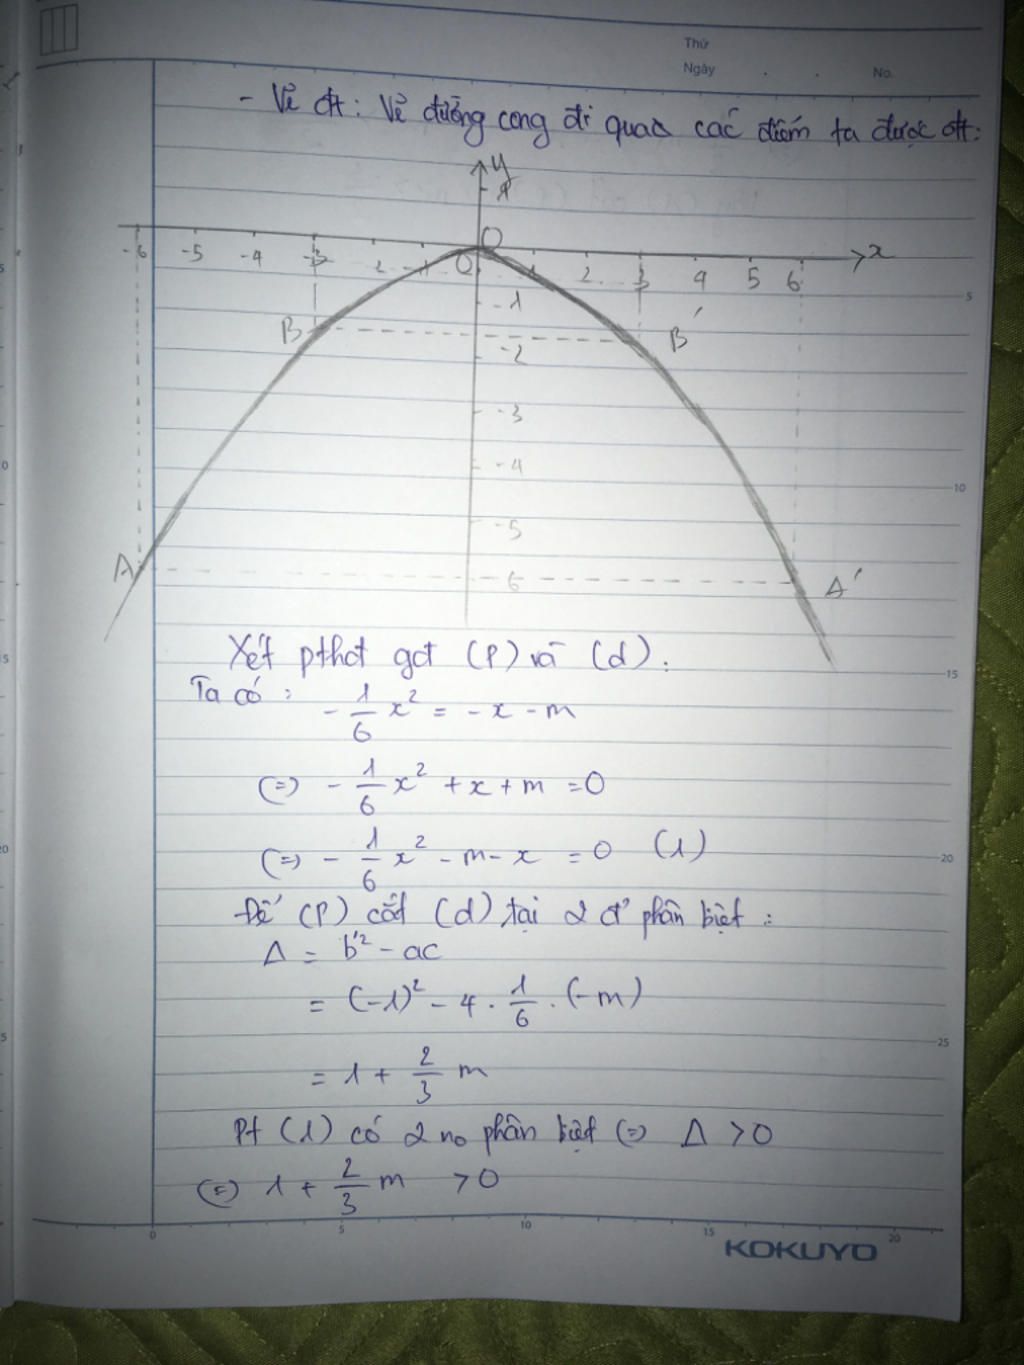 Thứ
Ngày . . No.
- Vẽ đt: Vẽ đường cong đi qua các điểm ta được đt:
y
1
O
-6 -5 -4 -3 2 -1 O 1 2 3 4 5 6 x
-1
B B'
-2
-3
-4
-5
A -6 A'
Xét pthđt gđt (P) và (d).
Ta có: -1/6 x² = -x - m
(=) -1/6 x² + x + m = 0
(=) -1/6 x² - m - x = 0 (1)
Để (P) cắt (d) tại 2 đ' phân biệt:
Δ = b'² - ac
= (-1)² - 4 . 1/6 . (-m)
= 1 + 2/3 m
Pt (1) có 2 no phân biệt (=) Δ > 0
(=) 1 + 2/3 m > 0
0 5 10 15 20
5 10 15 20 25
KOKUYO